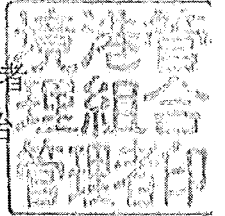 者
境港管
理組合
管理者印